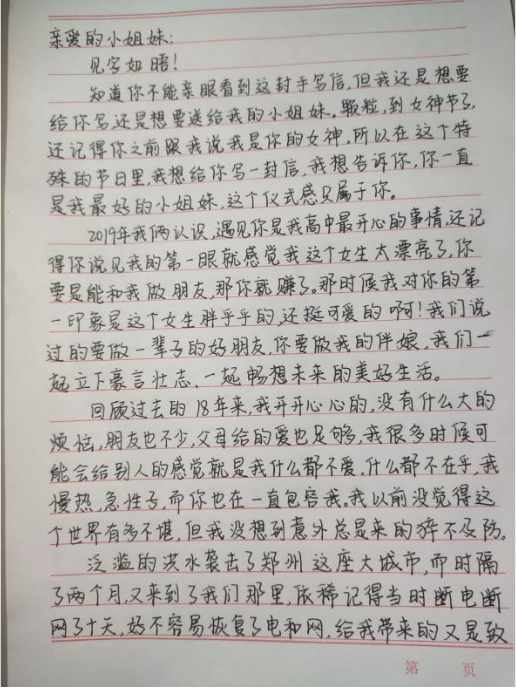 亲爱的小姐妹：
见字如晤！
知道你不能亲眼看到这封手写信，但我还是想要
给你写还是想要送给我的小姐妹。颗粒，到女神节了，
还记得你之前跟我说我是你的女神，所以在这个特
殊的节日里，我想给你写一封信，我想告诉你，你一直
是我最好的小姐妹，这个仪式感只属于你。
2019年我俩认识，遇见你是我高中最开心的事情，还记
得你说见我的第一眼就感觉我这个女生太漂亮了，你
要是能和我做朋友，那你就赚了。那时候我对你的第
一印象是这个女生胖乎乎的，还挺可爱的啊！我们说
过的要做一辈子的好朋友，你要做我的伴娘，我们一
起立下豪言壮志、一起畅想未来的美好生活。
回顾过去的18年来，我开开心心的，没有什么大的
烦恼，朋友也不少，父母给的爱也足够，我很多时候可
能会给别人的感觉就是我什么都不爱，什么都不在乎，我
慢热，急性子，而你也在一直包容我。我以前没觉得这
个世界有多不堪，但我没想到意外总是来的猝不及防。
泛滥的洪水袭击了郑州这座大城市，而时隔
了两个月，又来到了我们那里，依稀记得当时断电断
网了十天，好不容易恢复了电和网，给我带来的又是致
第 页